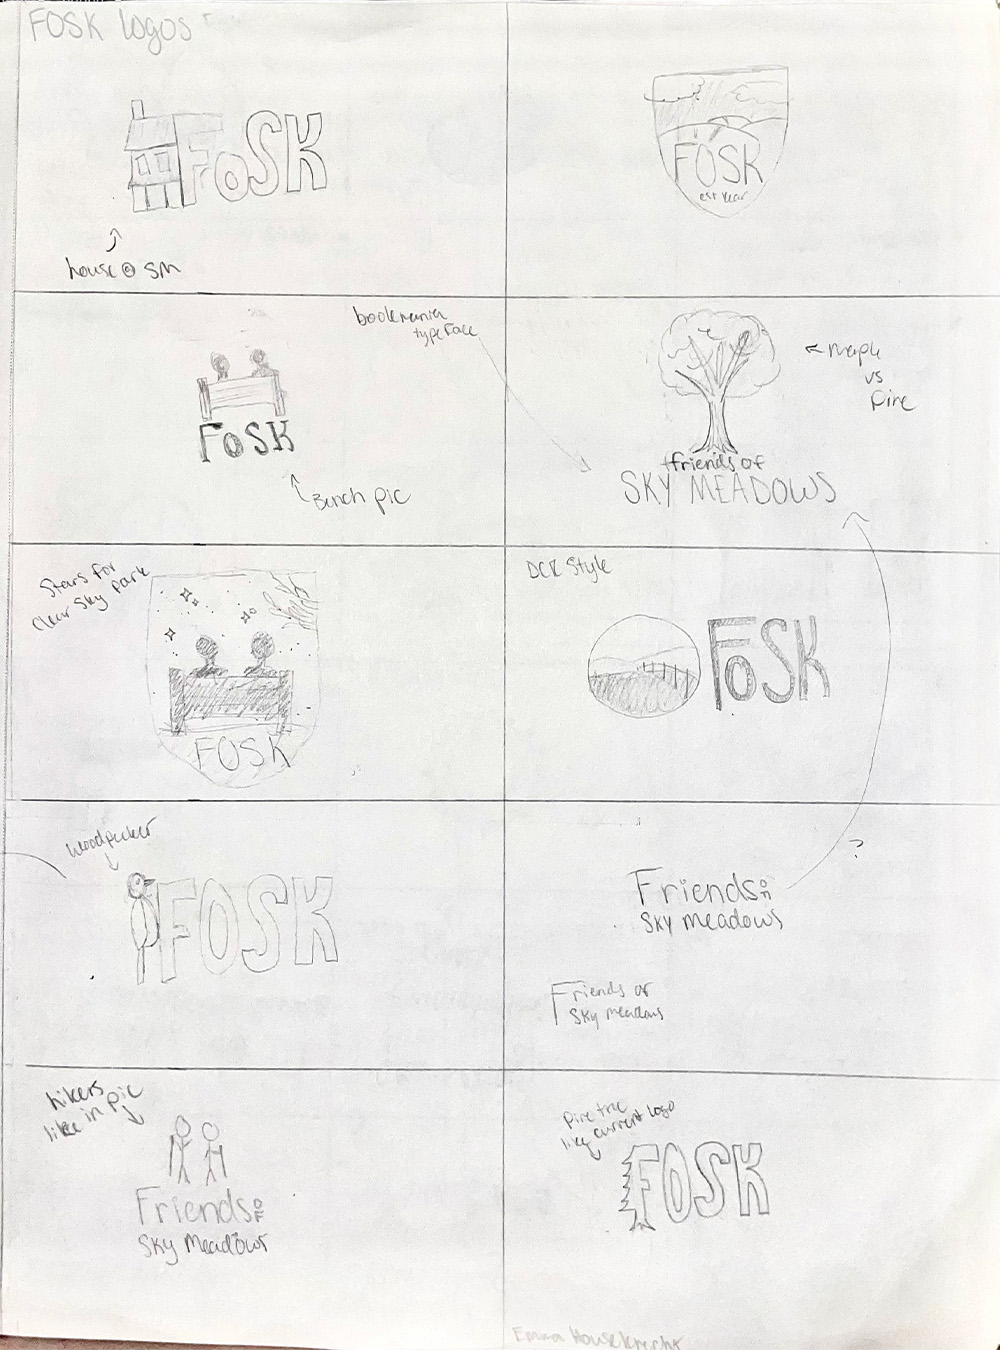 FOSK logos
FOSK
house @ SM
FOSK
est year
FOSK
Bench pic
bookmania
typeface
friends of
SKY MEADOWS
maple
vs
pine
Stars for
clear sky park
FOSK
DCR Style
FOSK
woodpecker
FOSK
?
Friends of
Sky meadows
Friends of
Sky meadows
hikers
like in pic
Friends of
Sky Meadows
pine tree
like current logo
FOSK
Emma Houseknecht